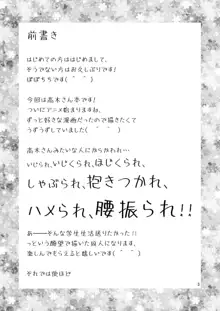 前書き
はじめての方ははじめまして。
そうでない方はお久しぶりです!
ぽぽちちです。
今回は高木さん本です!
ついにアニメ始まりますね。
ずっと好きな漫画だったので描きたくて
うずうずしていました(^ ^)
高木さんみたいな人にからかわれ…
いじられ、いじくられ、ほじくられ、
しゃぶられ、抱きつかれ、
ハメられ、腰振られ!!
あーそんな学生生活送りたかったっ
っという願望で描いた同人になります。
楽しんでもらえると嬉しいです(^ ^)
それでは後ほど